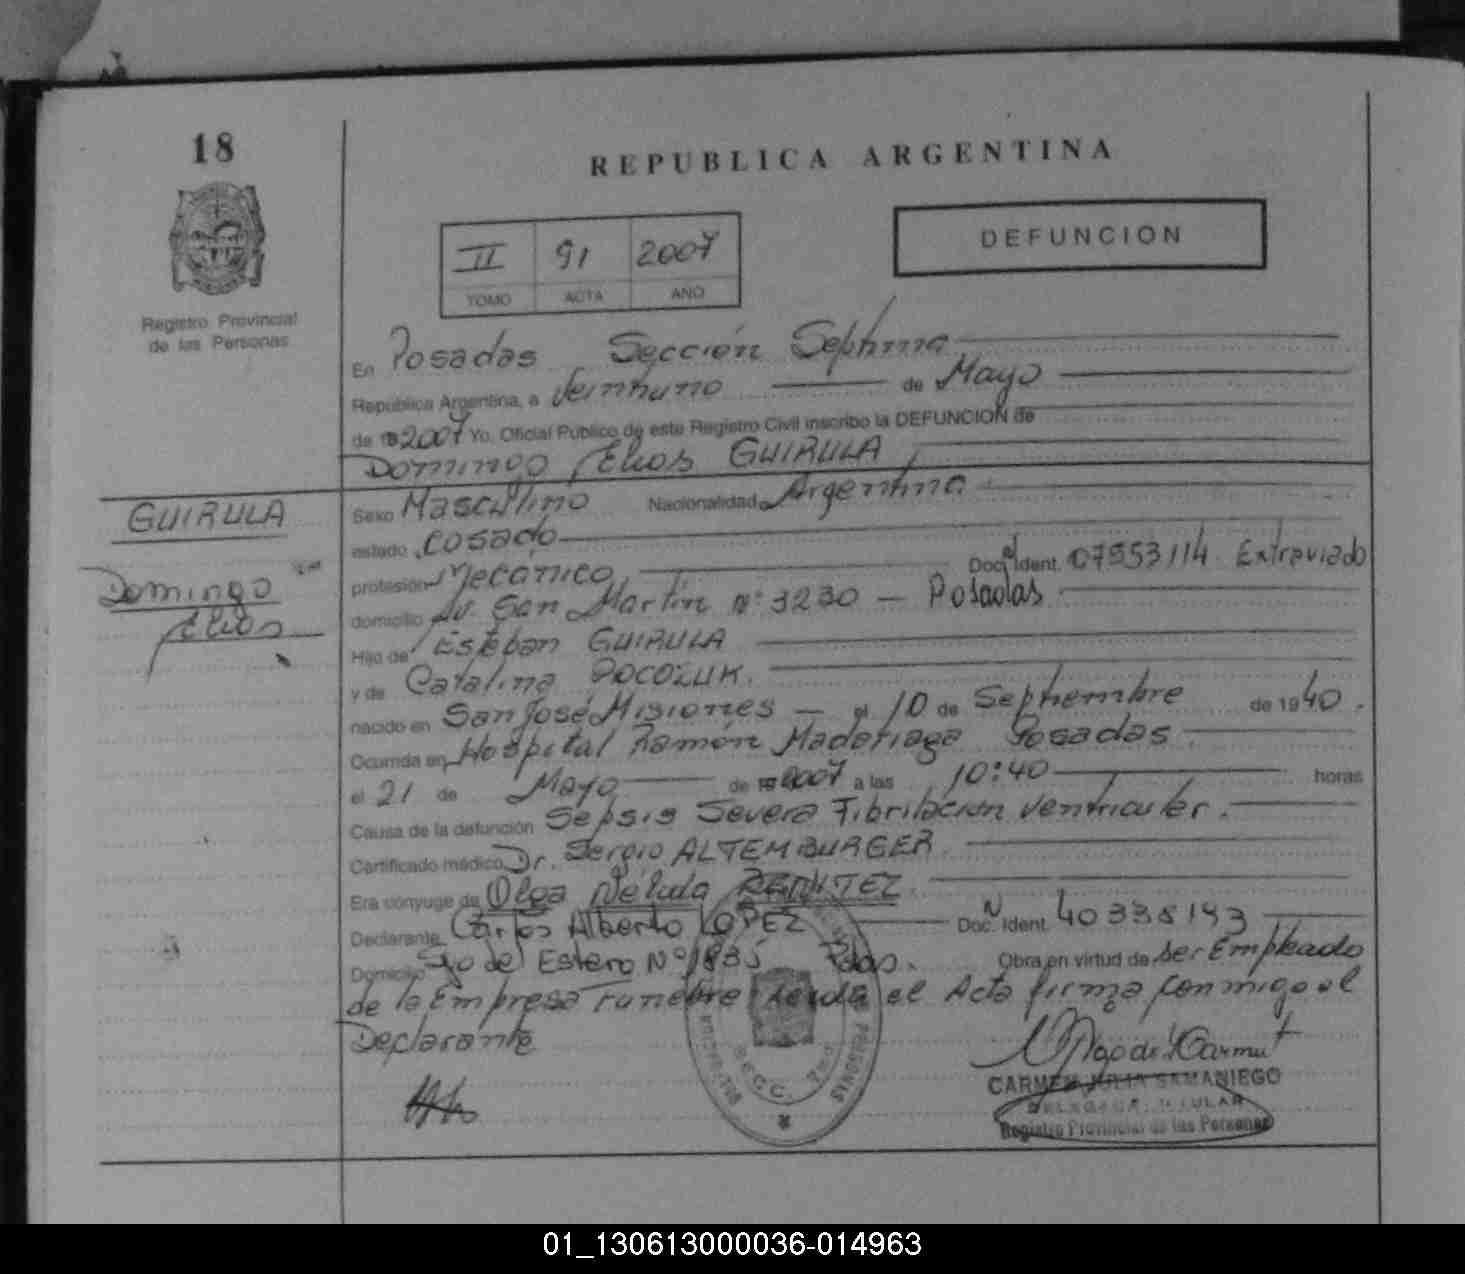 18
REPUBLICA ARGENTINA
II 91 2007
TOMO ACTA AÑO
DEFUNCION
Registro Provincial
de las Personas
En Posadas Sección Septima
República Argentina, a Veintiuno de Mayo
de 19 2007 Yo, Oficial Público de este Registro Civil inscribo la DEFUNCION de
Domingo Elios GUIRULA
GUIRULA
Domingo
Elios
Sexo Masculino Nacionalidad Argentina
estado Casado
profesión Mecánico Doc. Ident. 07553114 Extraviado
domicilio Av. San Martín Nº 3230 - Posadas
Hijo de Esteban GUIRULA
y de Catalina POCOZUK.
nacido en San José Misiones - el 10 de Septiembre de 1940.
Ocurrida en Hospital Ramón Madariaga Posadas.
el 21 de Mayo de 19 2007 a las 10:40 horas
Causa de la defunción Sepsis Severa Fibrilacion Ventricular.
Certificado médico Dr. Sergio ALTEMBURGER
Era cónyuge de Olga Nélida BENITEZ.
Declarante Carlos Alberto LOPEZ Doc. Ident. 40335143
Domicilio Sgo del Estero Nº 1835 Pdas. Obra en virtud de ser Empleado
de la Empresa Funebre Leída el Acta firma conmigo el
Declarante
SECC. 7ma
PERSONAS
CARMEN JULIA SAMANIEGO
DELEGADA TITULAR
Registro Provincial de las Personas
01_130613000036-014963